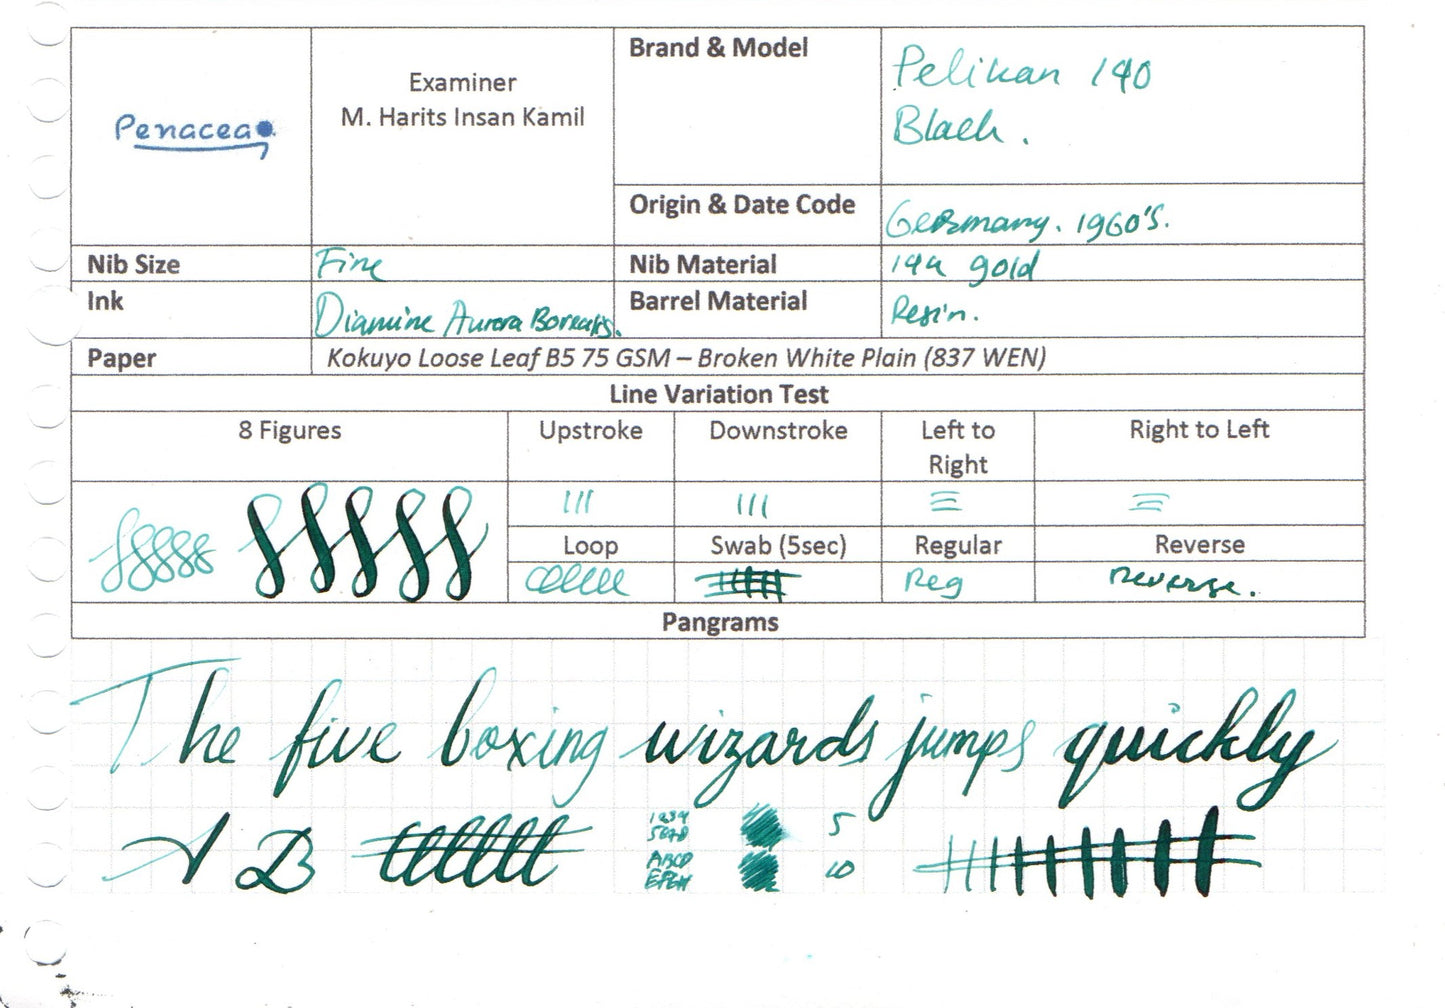 Penacea
Examiner
M. Harits Insan Kamil
Brand & Model
Pelikan 140
Black.
Origin & Date Code
Germany. 1960's.
Nib Size
Fine
Nib Material
14k gold
Ink
Diamine Aurora Borealis.
Barrel Material
Resin.
Paper
Kokuyo Loose Leaf B5 75 GSM – Broken White Plain (837 WEN)
Line Variation Test
8 Figures
Upstroke
Downstroke
Left to
Right
Right to Left
Loop
Swab (5sec)
Regular
Reverse
Reg
Reverse.
Pangrams
The five boxing wizards jumps quickly
A B
1234
5678
5
ABCD
EFGH
10